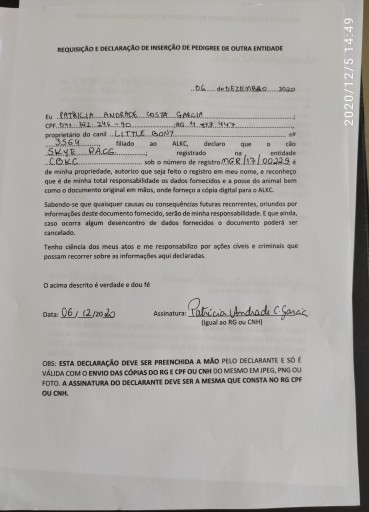 REQUISIÇÃO E DECLARAÇÃO DE INSERÇÃO DE PEDIGREE DE OUTRA ENTIDADE
06 de DEZEMBRO 2020
Eu PATRICIA ANDRADE COSTA GARCIA
CPF RG M
proprietário do canil LITTLE BONY nº
3564 filiado ao ALKC, declaro que o cão
SKYE PACG registrado na entidade
CBKC sob o número de registro MGR/17/00225 é
de minha propriedade, autorizo que seja feito o registro em meu nome, e reconheço
que é de minha total responsabilidade os dados fornecidos e a posse do animal bem
como o documento original em mãos, onde forneço a cópia digital para o ALKC.
Sabendo-se que quaisquer causas ou consequências futuras recorrentes, oriundos por
informações deste documento fornecido, serão de minha responsabilidade. E que ainda,
caso ocorra algum desencontro de dados fornecidos o documento poderá ser
cancelado.
Tenho ciência dos meus atos e me responsabilizo por ações cíveis e criminais que
possam recorrer sobre as informações aqui declaradas.
O acima descrito é verdade e dou fé
Data: 06/12/2020 Assinatura: Patricia Andrade C Garcia
(Igual ao RG ou CNH)
OBS: ESTA DECLARAÇÃO DEVE SER PREENCHIDA A MÃO PELO DECLARANTE E SÓ É
VÁLIDA COM O ENVIO DAS CÓPIAS DO RG E CPF OU CNH DO MESMO EM JPEG, PNG OU
FOTO. A ASSINATURA DO DECLARANTE DEVE SER A MESMA QUE CONSTA NO RG CPF
OU CNH.
2020/12/5 14:49